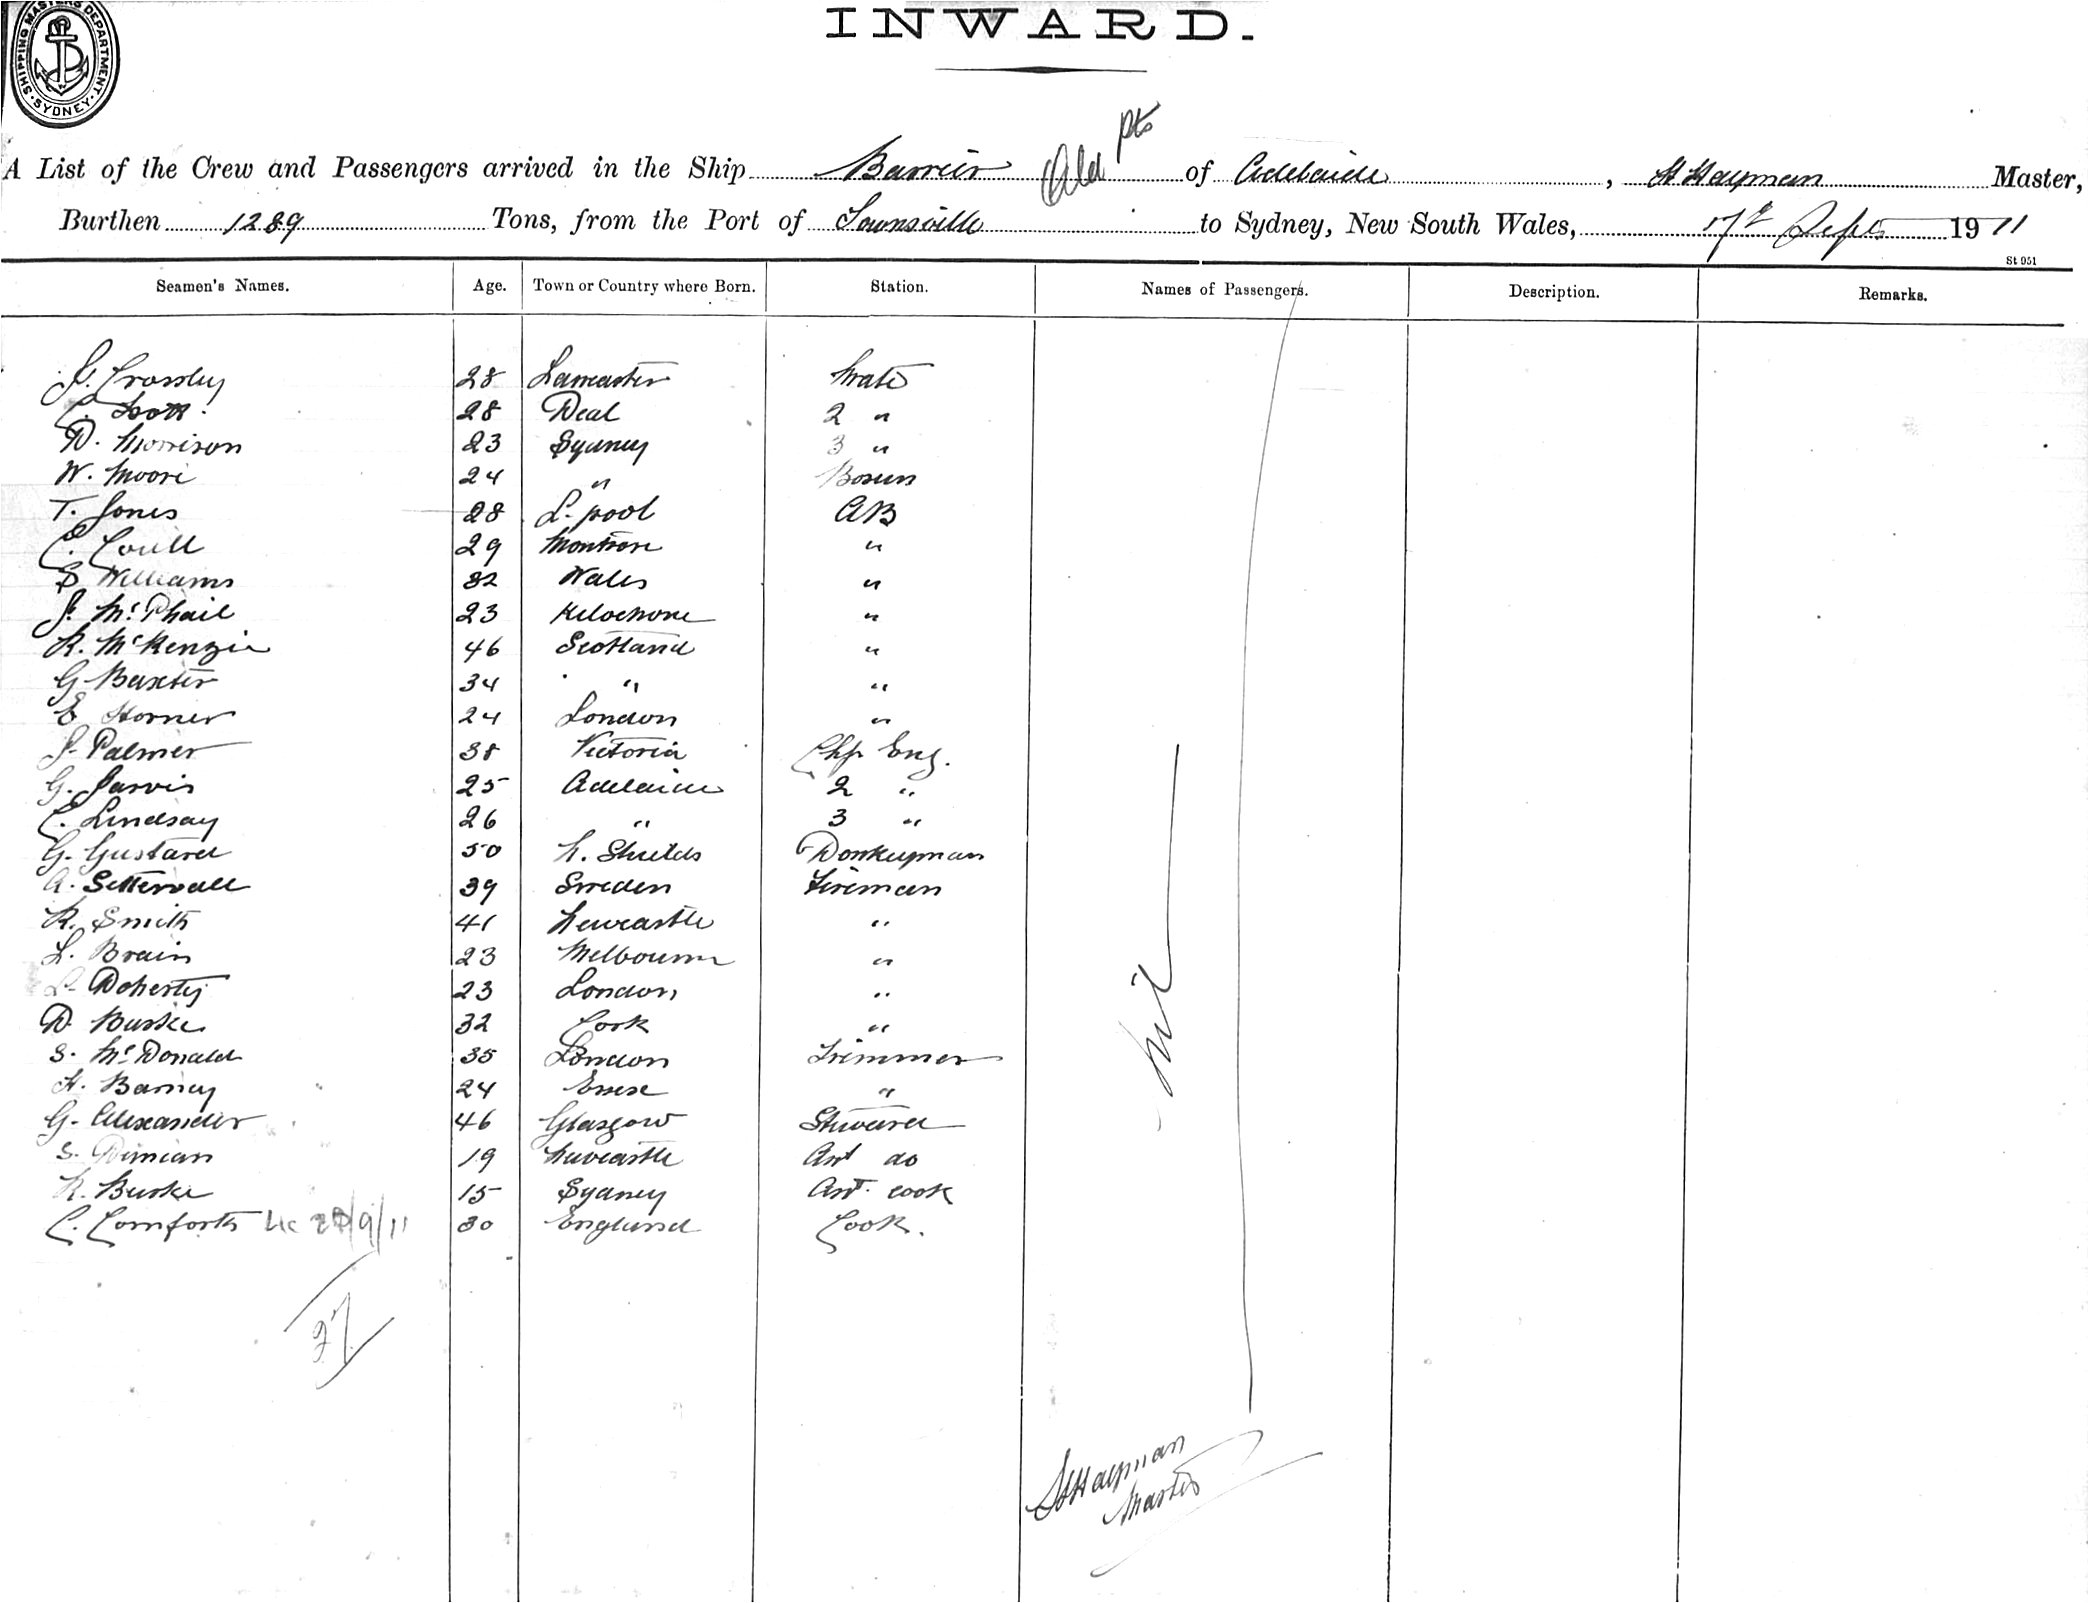 SHIPPING MASTERS DEPARTMENT. SYDNEY.
INWARD.
pts
A List of the Crew and Passengers arrived in the Ship Barrier of Adelaide, Master,
Burthen 1289 Tons, from the Port of Townsville to Sydney, New South Wales, 17th Sept 1911
St 951
Seamen's Names. Age. Town or Country where Born. Station. Names of Passengers. Description. Remarks.
J. Crossley 28 Lancaster Mate
C. Scott. 28 Deal 2 "
D. Morrison 23 Sydney 3 "
W. Moore 24 " Bosun
T. Jones 28 L. pool AB
C. 29 Montrose "
S Williams 32 Wales "
J. McPhail 23 "
R. McKenzie 46 Scotland "
G Baxter 34 " "
E Horner 24 London "
J. Palmer 38 Victoria Chf Eng.
G. Jarvis 25 Adelaide 2 "
C. Lindsay 26 " 3 "
G. Gustard 50 N. Shields Donkeyman
A. Settervall 39 Sweden Fireman
R. Smith 41 Newcastle "
L. Brain 23 Melbourne "
L. Doherty 23 London "
D. Burke 32 Cork "
S. McDonald 35 London Trimmer
H. Barney 24 Essex "
G. Alexander 46 Glasgow Steward
S. 19 Newcastle Asst do
R. Burke 15 Sydney Asst. cook
C. Comforth 30 England Cook.
Nil
27
Master